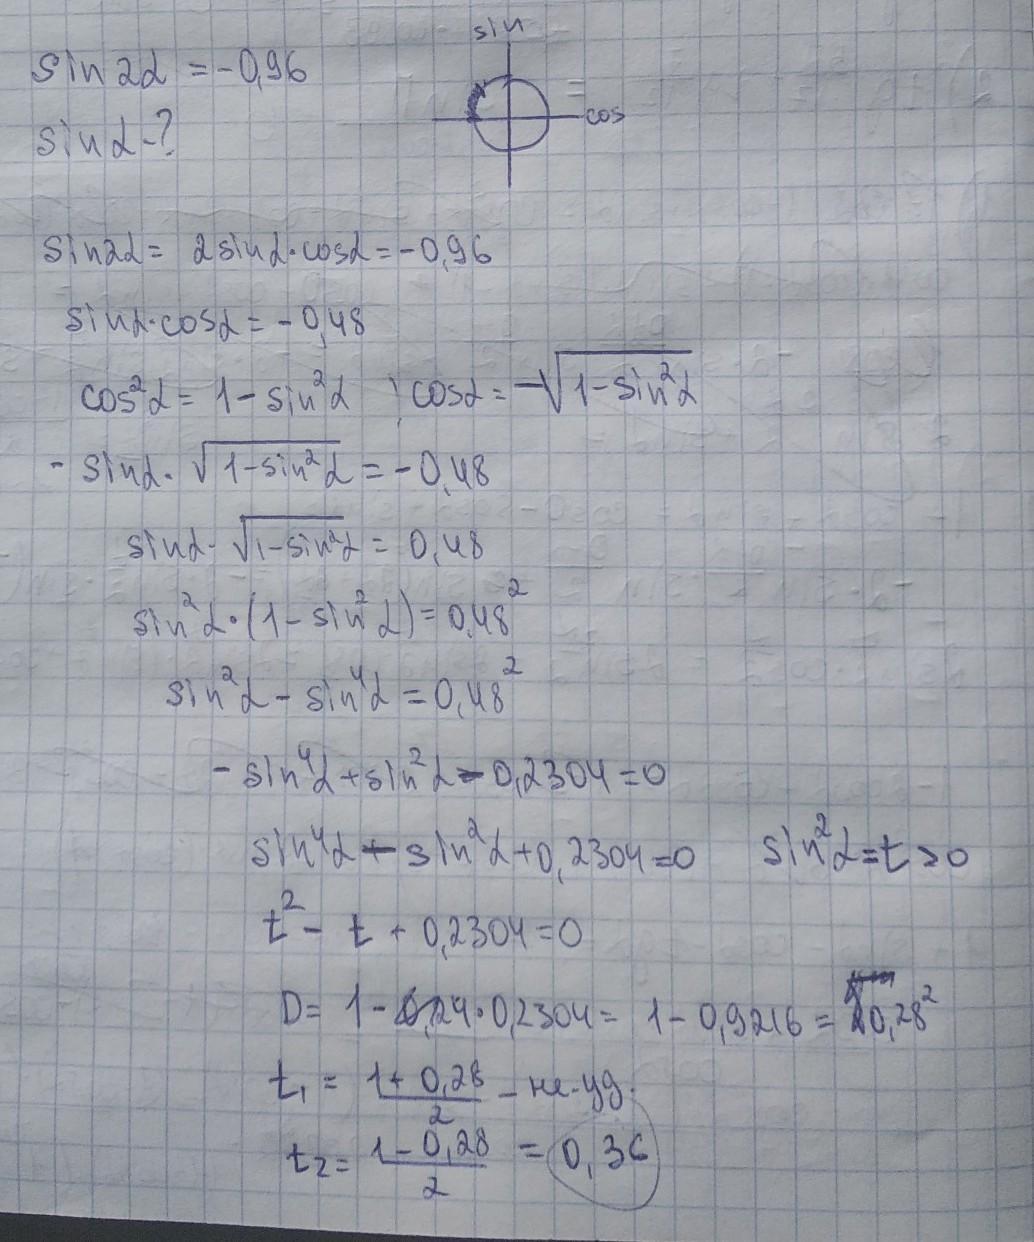 sin
sin2α = -0,96
cos
sinα-?
sin2α = 2sinα·cosα = -0,96
sinα·cosα = -0,48
cos²α = 1 - sin²α ; cosα = -√(1-sin²α)
- sinα · √(1-sin²α) = -0,48
sinα · √(1-sin²α) = 0,48
sin²α · (1 - sin²α) = 0,48²
sin²α - sin⁴α = 0,48²
- sin⁴α + sin²α - 0,2304 = 0
sin⁴α - sin²α + 0,2304 = 0 sin²α = t > 0
t² - t + 0,2304 = 0
D = 1 - 4·0,2304 = 1 - 0,9216 = 0,28²
t₁ = (1 + 0,28)/2 - не уд.
t₂ = (1 - 0,28)/2 = 0,36